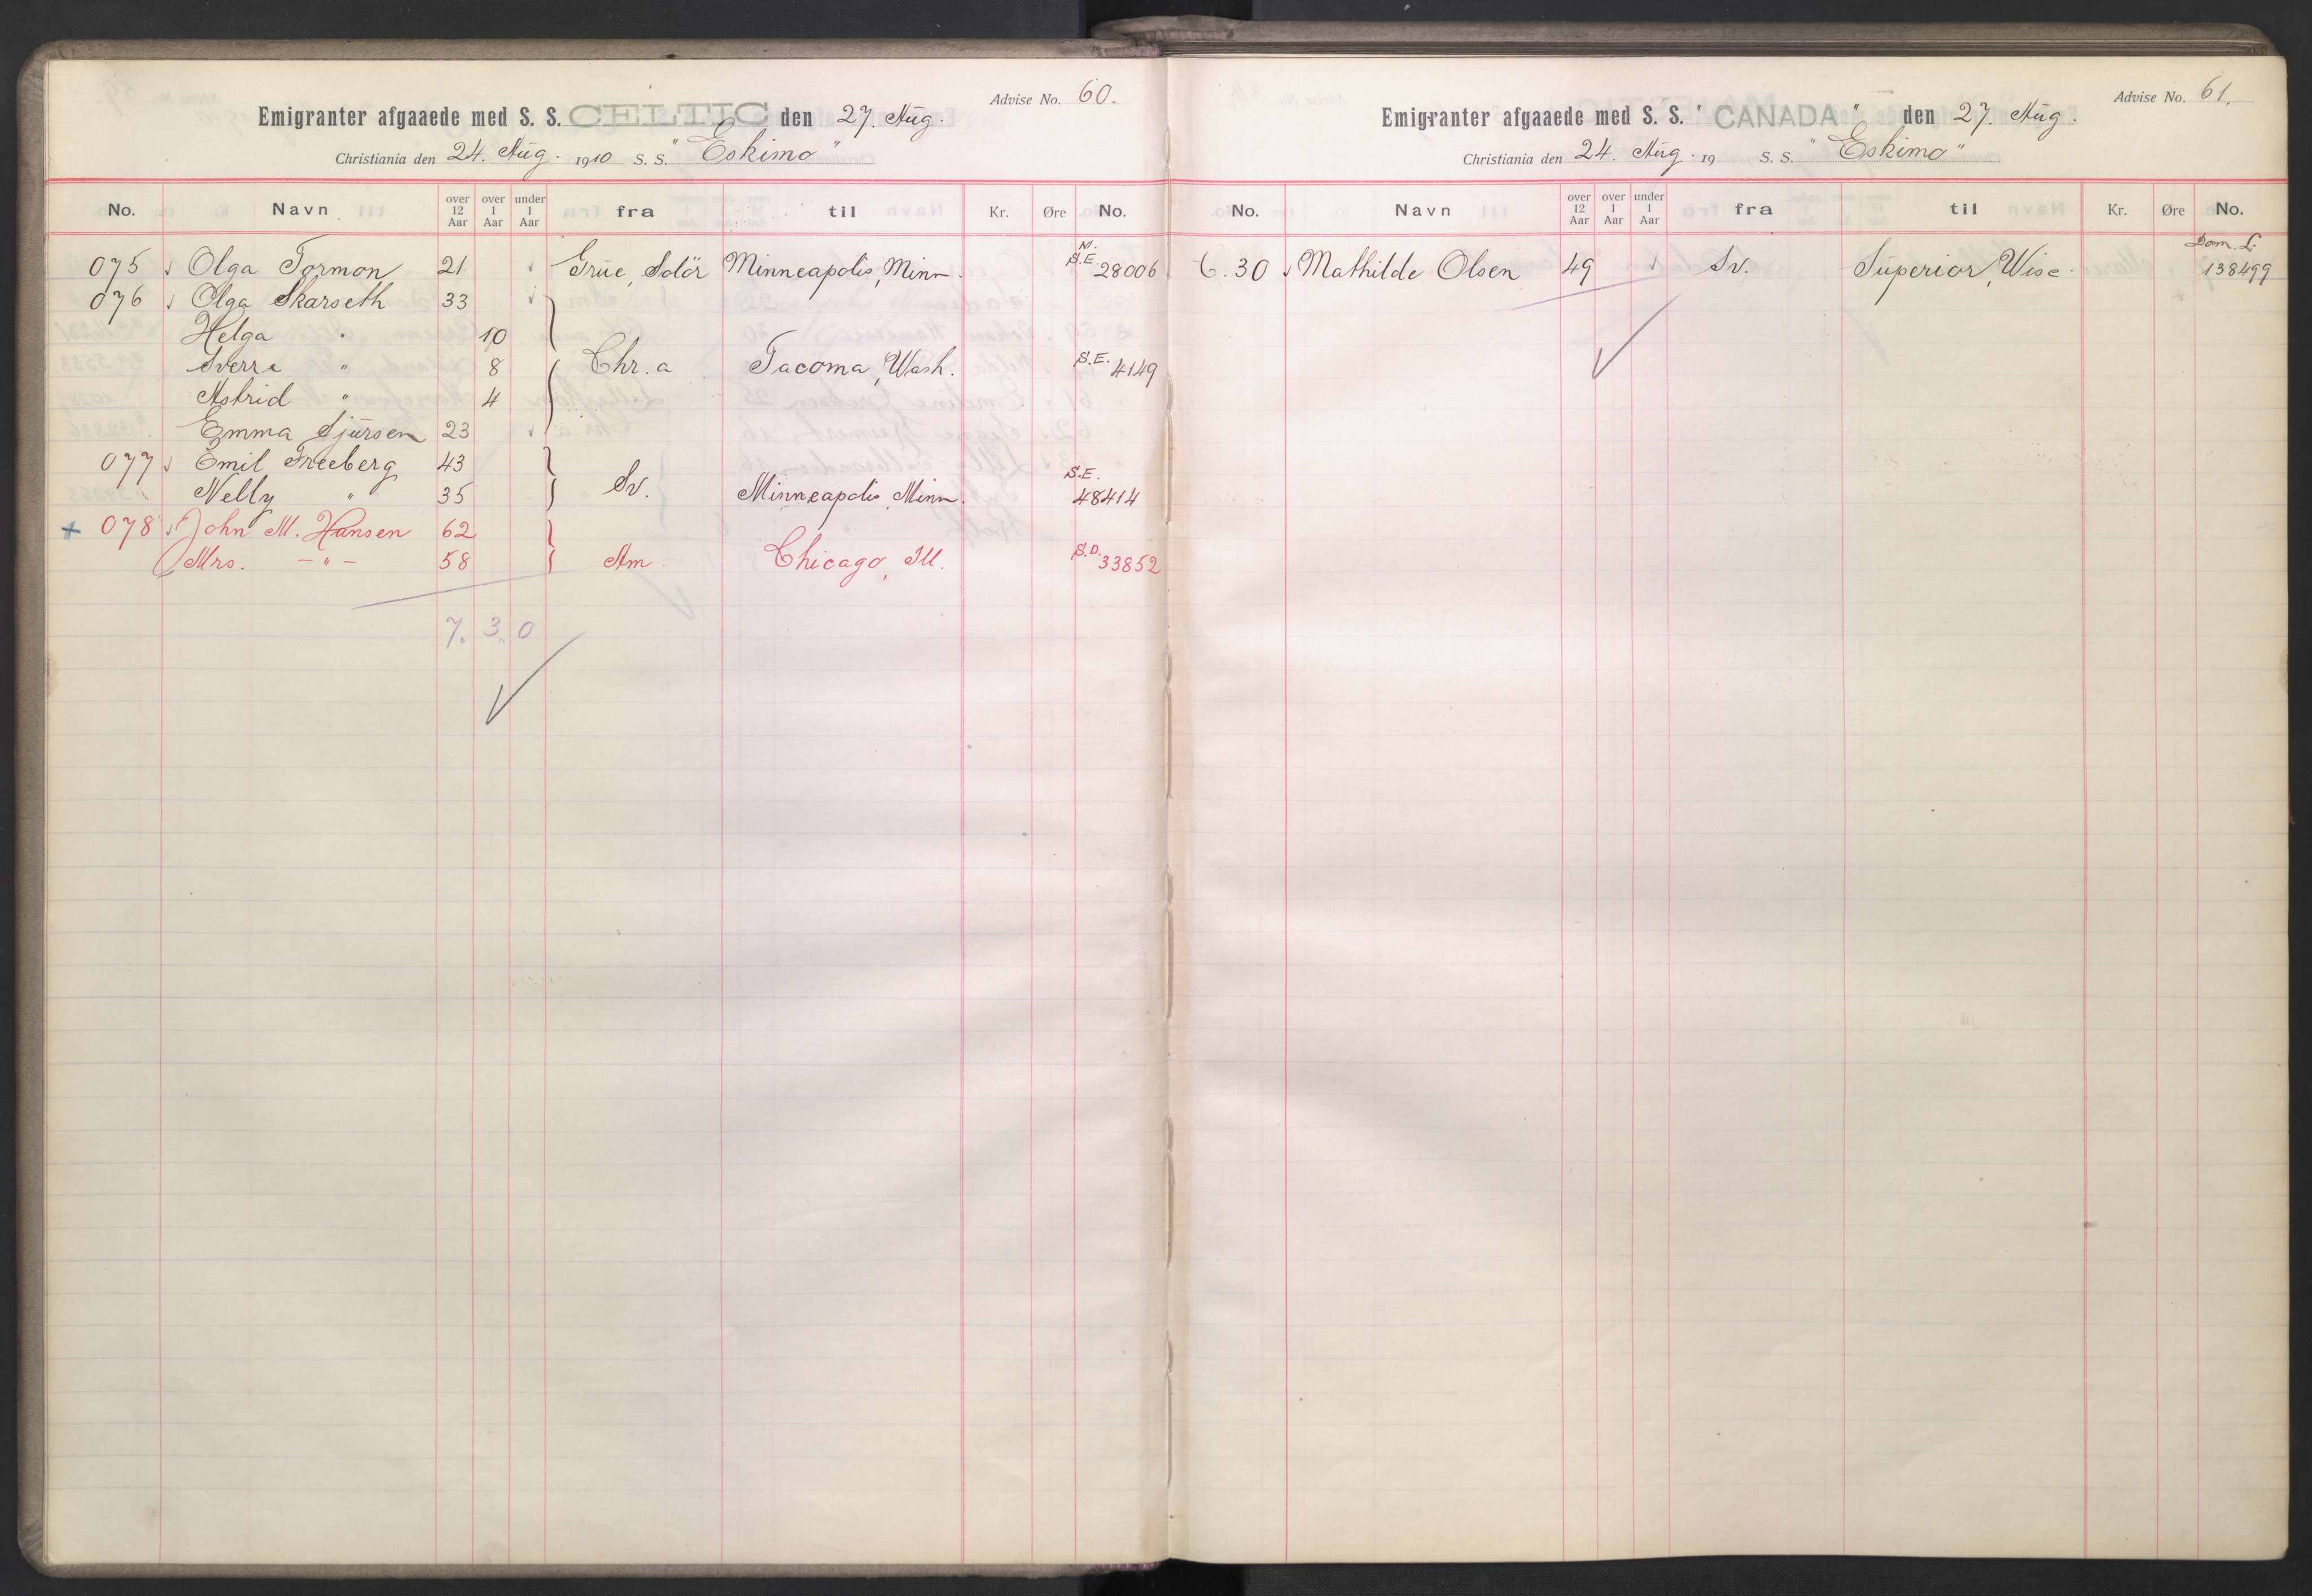 Advise No. 60.
Emigranter afgaaede med S. S. CELTIC den 27. Aug.
Christiania den 24. Aug. 1910 S. S. "Eskimo"
No. Navn over 12 Aar over 1 Aar under 1 Aar fra til Kr. Øre No.
075 Olga Tormon 21 Grue, Solör Minneapolis, Minn. S.E. 28006
076 Olga Skarseth 33
Helga " 10
Sverre " 8 Chr.a Tacoma, Wash. S.E. 4149
Astrid " 4
Emma Sjursen 23
077 Emil Freeberg 43
Nelly " 35 Sv. Minneapolis, Minn. S.E. 48414
+ 078 John M. Hansen 62
Mrs. -"- 58 Am. Chicago, Ill. S.D. 33852
7. 3. 0
Advise No. 61.
Emigranter afgaaede med S. S. "CANADA" den 27. Aug.
Christiania den 24. Aug. 19 S. S. "Eskimo"
No. Navn over 12 Aar over 1 Aar under 1 Aar fra til Kr. Øre No.
6.30 Mathilde Olsen 49 Sv. Superior, Wisc. Dom. L. 138499